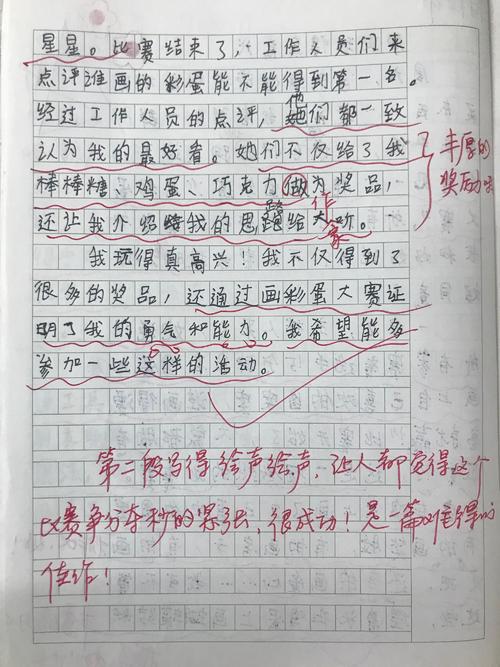 星星。比赛结束了，工作人员们来
点评谁画的彩蛋能不能得到第一名。
经过工作人员的点评，他们都一致
认为我的最好看。她们不仅给了我
棒棒糖、鸡蛋、巧克力做为奖品，
作
还让我介绍我的思路给大听。
家
丰厚的
奖励
我玩得真高兴！我不仅得到了
很多的奖品，还通过画彩蛋大赛证
明了我的勇气和能力。我希望能多
参加一些这样的活动。
第二段写得绘声绘声，让人都觉得这个
比赛争分夺秒的紧张，很成功！是一篇难得的
佳作！